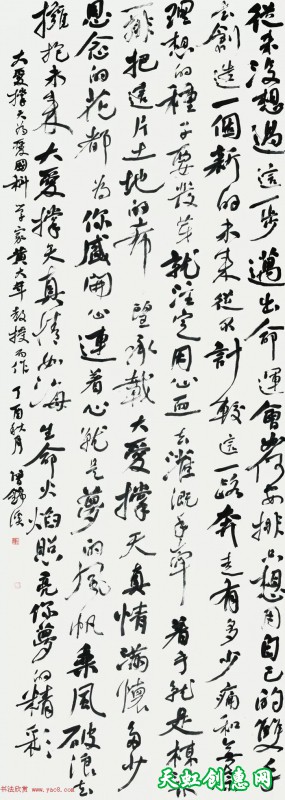 從未没想過這一步邁出命運會如何安排只想用自己的雙手
去創造一個新的未来從不計較這一路奔走有多少痛和
理想的種子要發芽就注定用心血去灌溉手牽着手就是棟
一排把這片土地的希望承載大愛撑天真情滿懷多少
思念的花都為你盛開心連着心就是夢的風帆乘風破浪去
擁抱未来大愛撑天真情如海生命火焰照亮你夢的精彩
大愛撑天為愛國科学家黄大年教授而作丁酉秋月
书法欣赏
www.yac8.com
天虹创意网